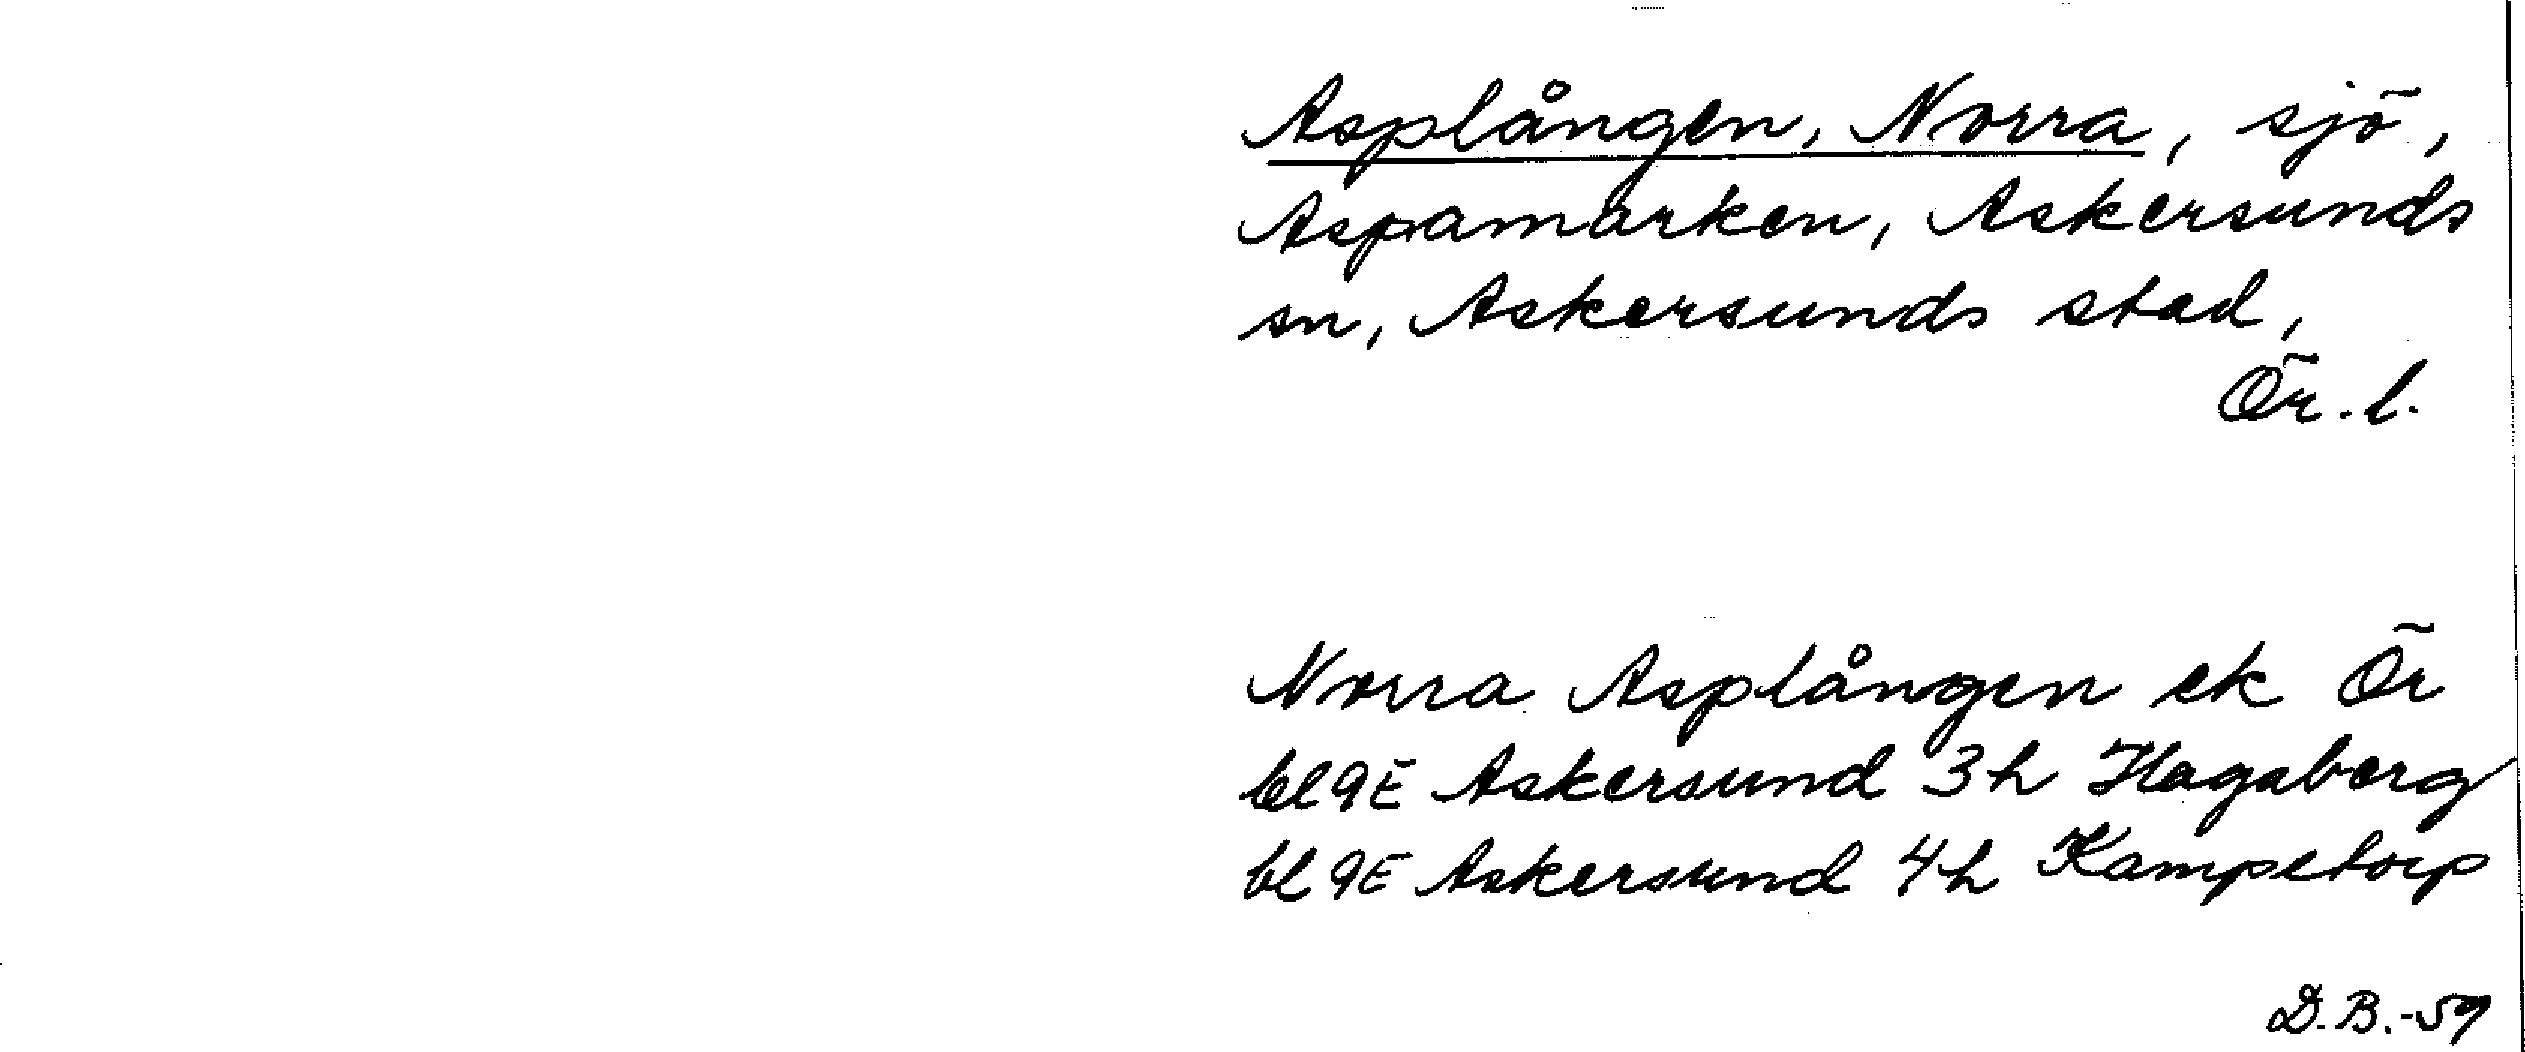 Asplången, Norra, sjö,
Aspamarken, Askersunds
sn, Askersunds stad,
Ör. l.
Norra Asplången ek Ör
bl 9E Askersund 3h Hagaberg
bl 9E Askersund 4h Kampetorp
D.B.-59